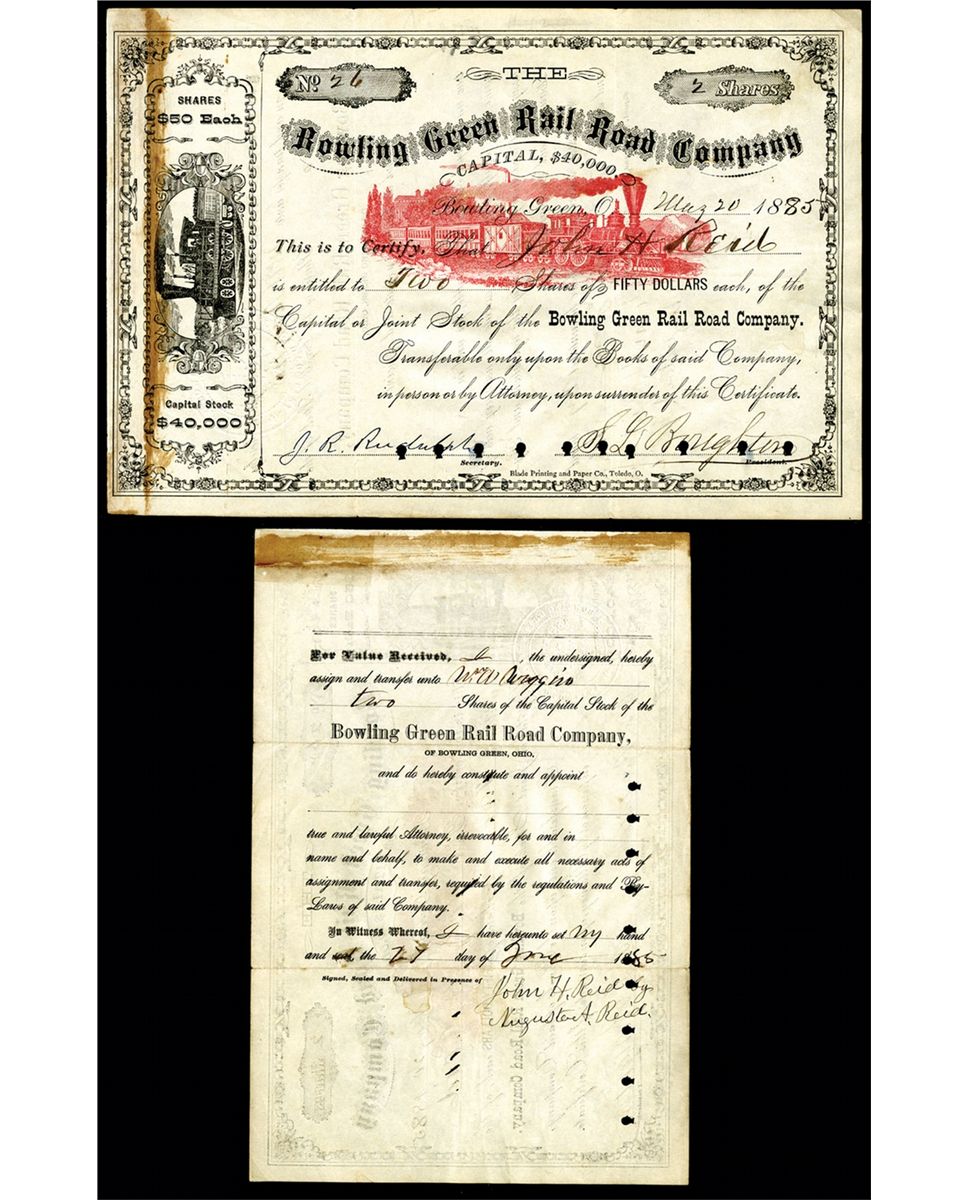 SHARES
$50 Each
Capital Stock
$40,000
No. 26
THE
2 Shares
Bowling Green Rail Road Company
CAPITAL, $40,000
Bowling Green, O. May 20 1885
This is to Certify, That John H Reid
is entitled to Two Shares of FIFTY DOLLARS each, of the
Capital or Joint Stock of the Bowling Green Rail Road Company.
Transferable only upon the Books of said Company,
in person or by Attorney, upon surrender of this Certificate.
J. R. Rudulph
S L Boughton
Secretary.
President.
Blade Printing and Paper Co., Toledo, O.
For Value Received, I, the undersigned, hereby
assign and transfer unto Wm W Wiggins
two Shares of the Capital Stock of the
Bowling Green Rail Road Company,
OF BOWLING GREEN, OHIO,
and do hereby constitute and appoint
true and lawful Attorney, irrevocable, for and in
name and behalf, to make and execute all necessary acts of
assignment and transfer, required by the regulations and By-
Laws of said Company.
In Witness Whereof, I have hereunto set my hand
and seal, the 27 day of June 1885
Signed, Sealed and Delivered in Presence of
John H. Reid by
Augusta A. Reid.